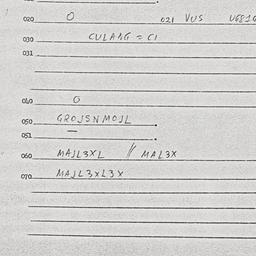 020 0 021 VUS
030 CULANG = CI
031
040 0
050 GROJSNMOJL .
051 — .
060 MAJL3XL // MAL3X
070 MAJL3XL3X